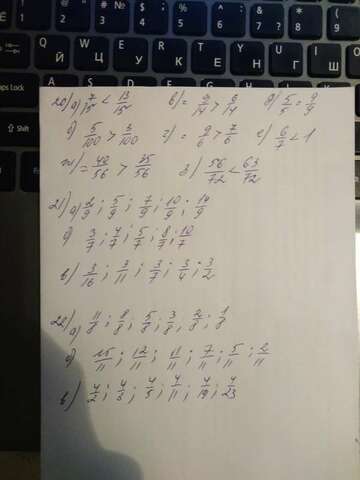 20) а) 7/15 < 13/15 в) = 9/14 > 5/14 д) 5/5 = 9/9
б) 5/100 > 3/100 г) = 9/6 > 7/6 е) 6/7 < 1
ж) = 40/56 > 35/56 з) 56/72 < 63/72
21) а) 2/9; 5/9; 7/9; 10/9; 14/9
б) 3/7; 4/7; 5/7; 8/7; 10/7
в) 3/16; 3/11; 3/7; 3/4; 3/2
22) а) 11/8; 8/8; 5/8; 3/8; 2/8; 1/8
б) 15/11; 12/11; 11/11; 7/11; 5/11; 2/11
в) 4/2; 4/3; 4/5; 4/11; 4/19; 4/23